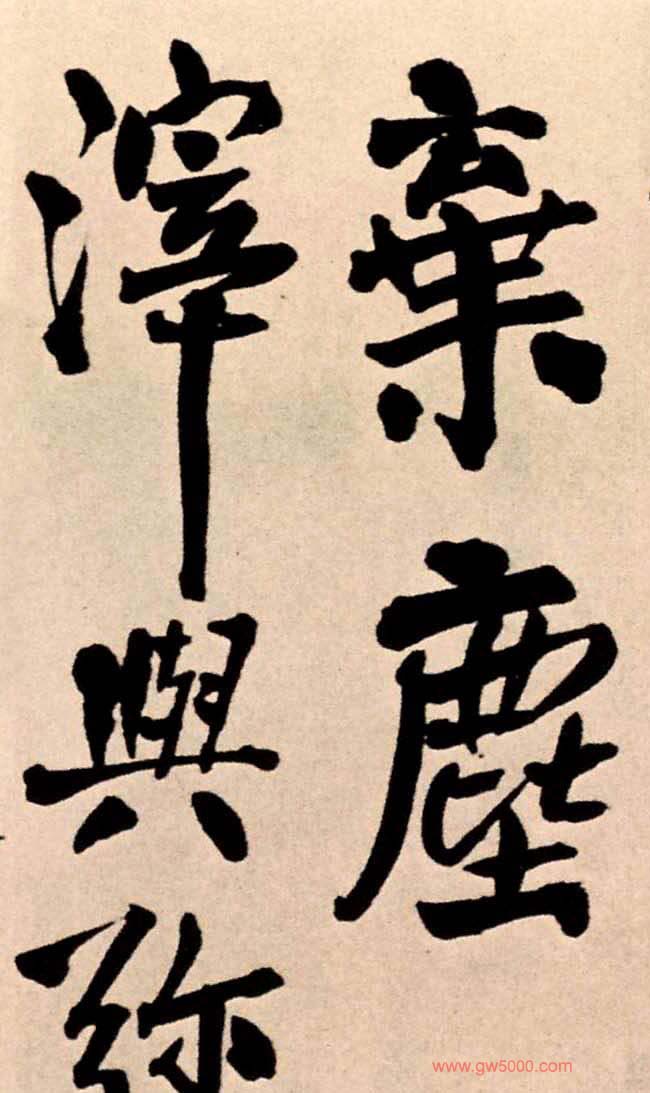 棄塵
滓與弥
www.gw5000.com